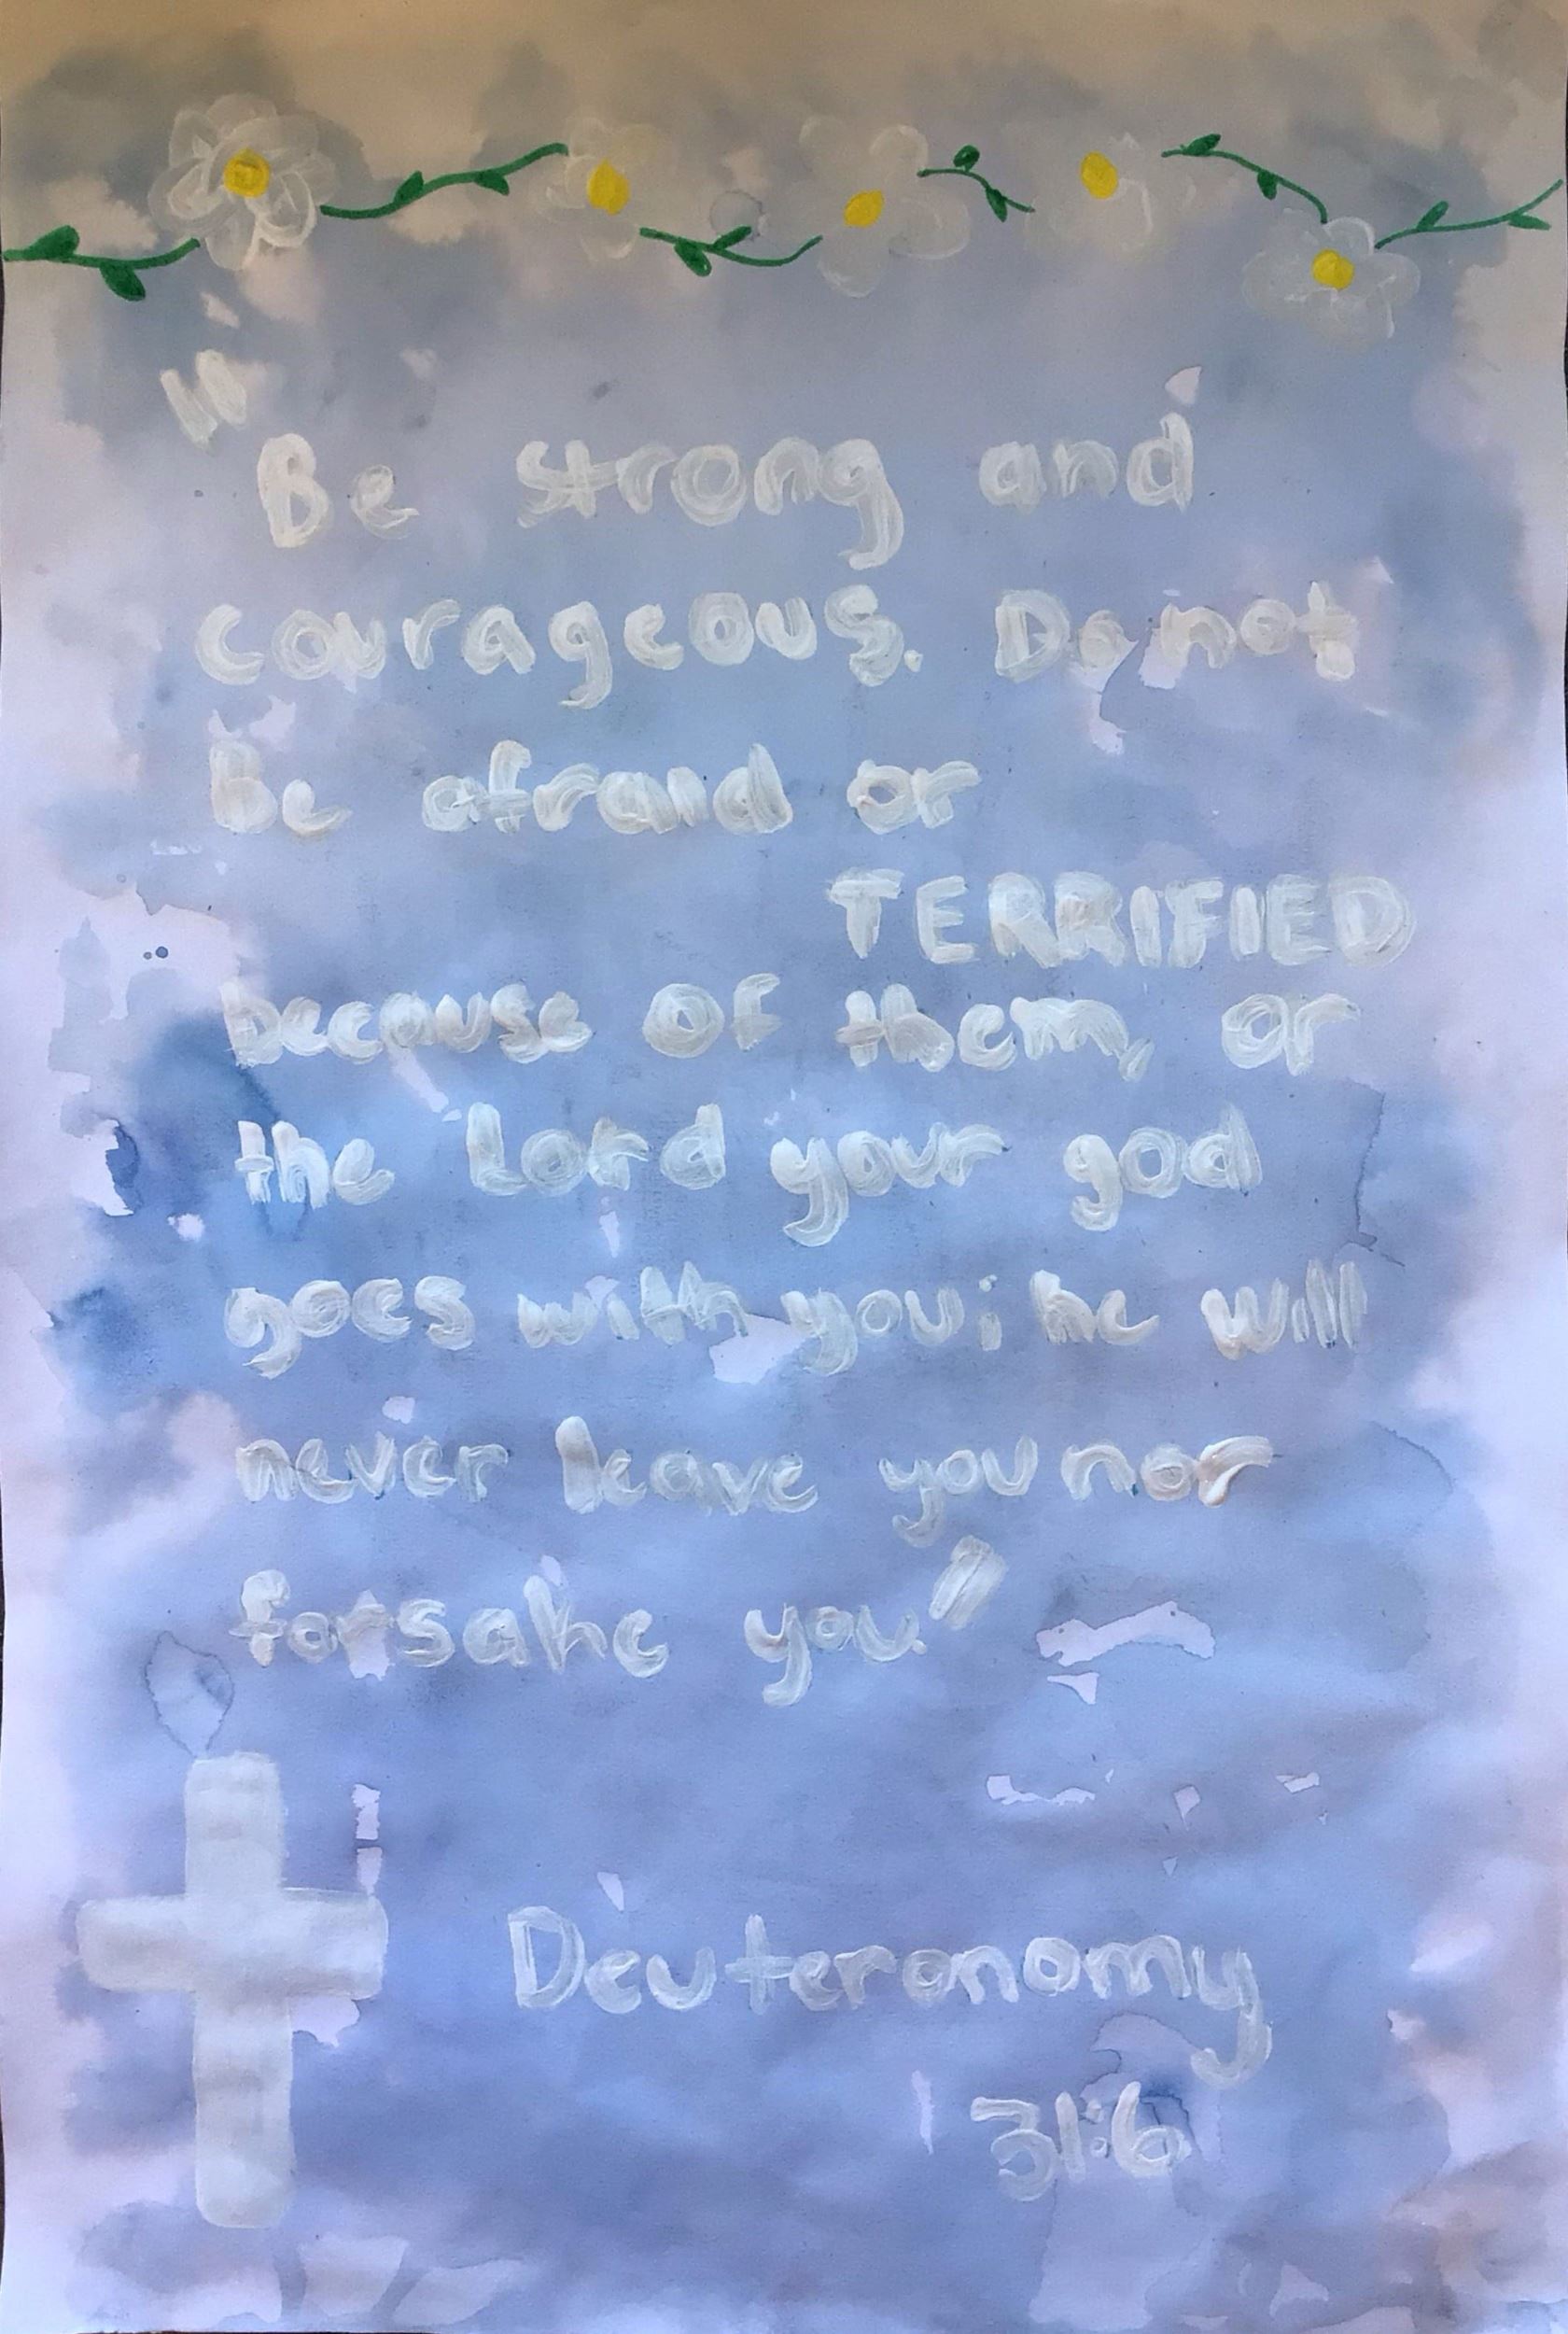 "Be strong and
courageous. Do not
be afraid or
TERRIFIED
because of them, or
the Lord your god
goes with you; he will
never leave you nor
forsake you."
Deuteronomy
31:6